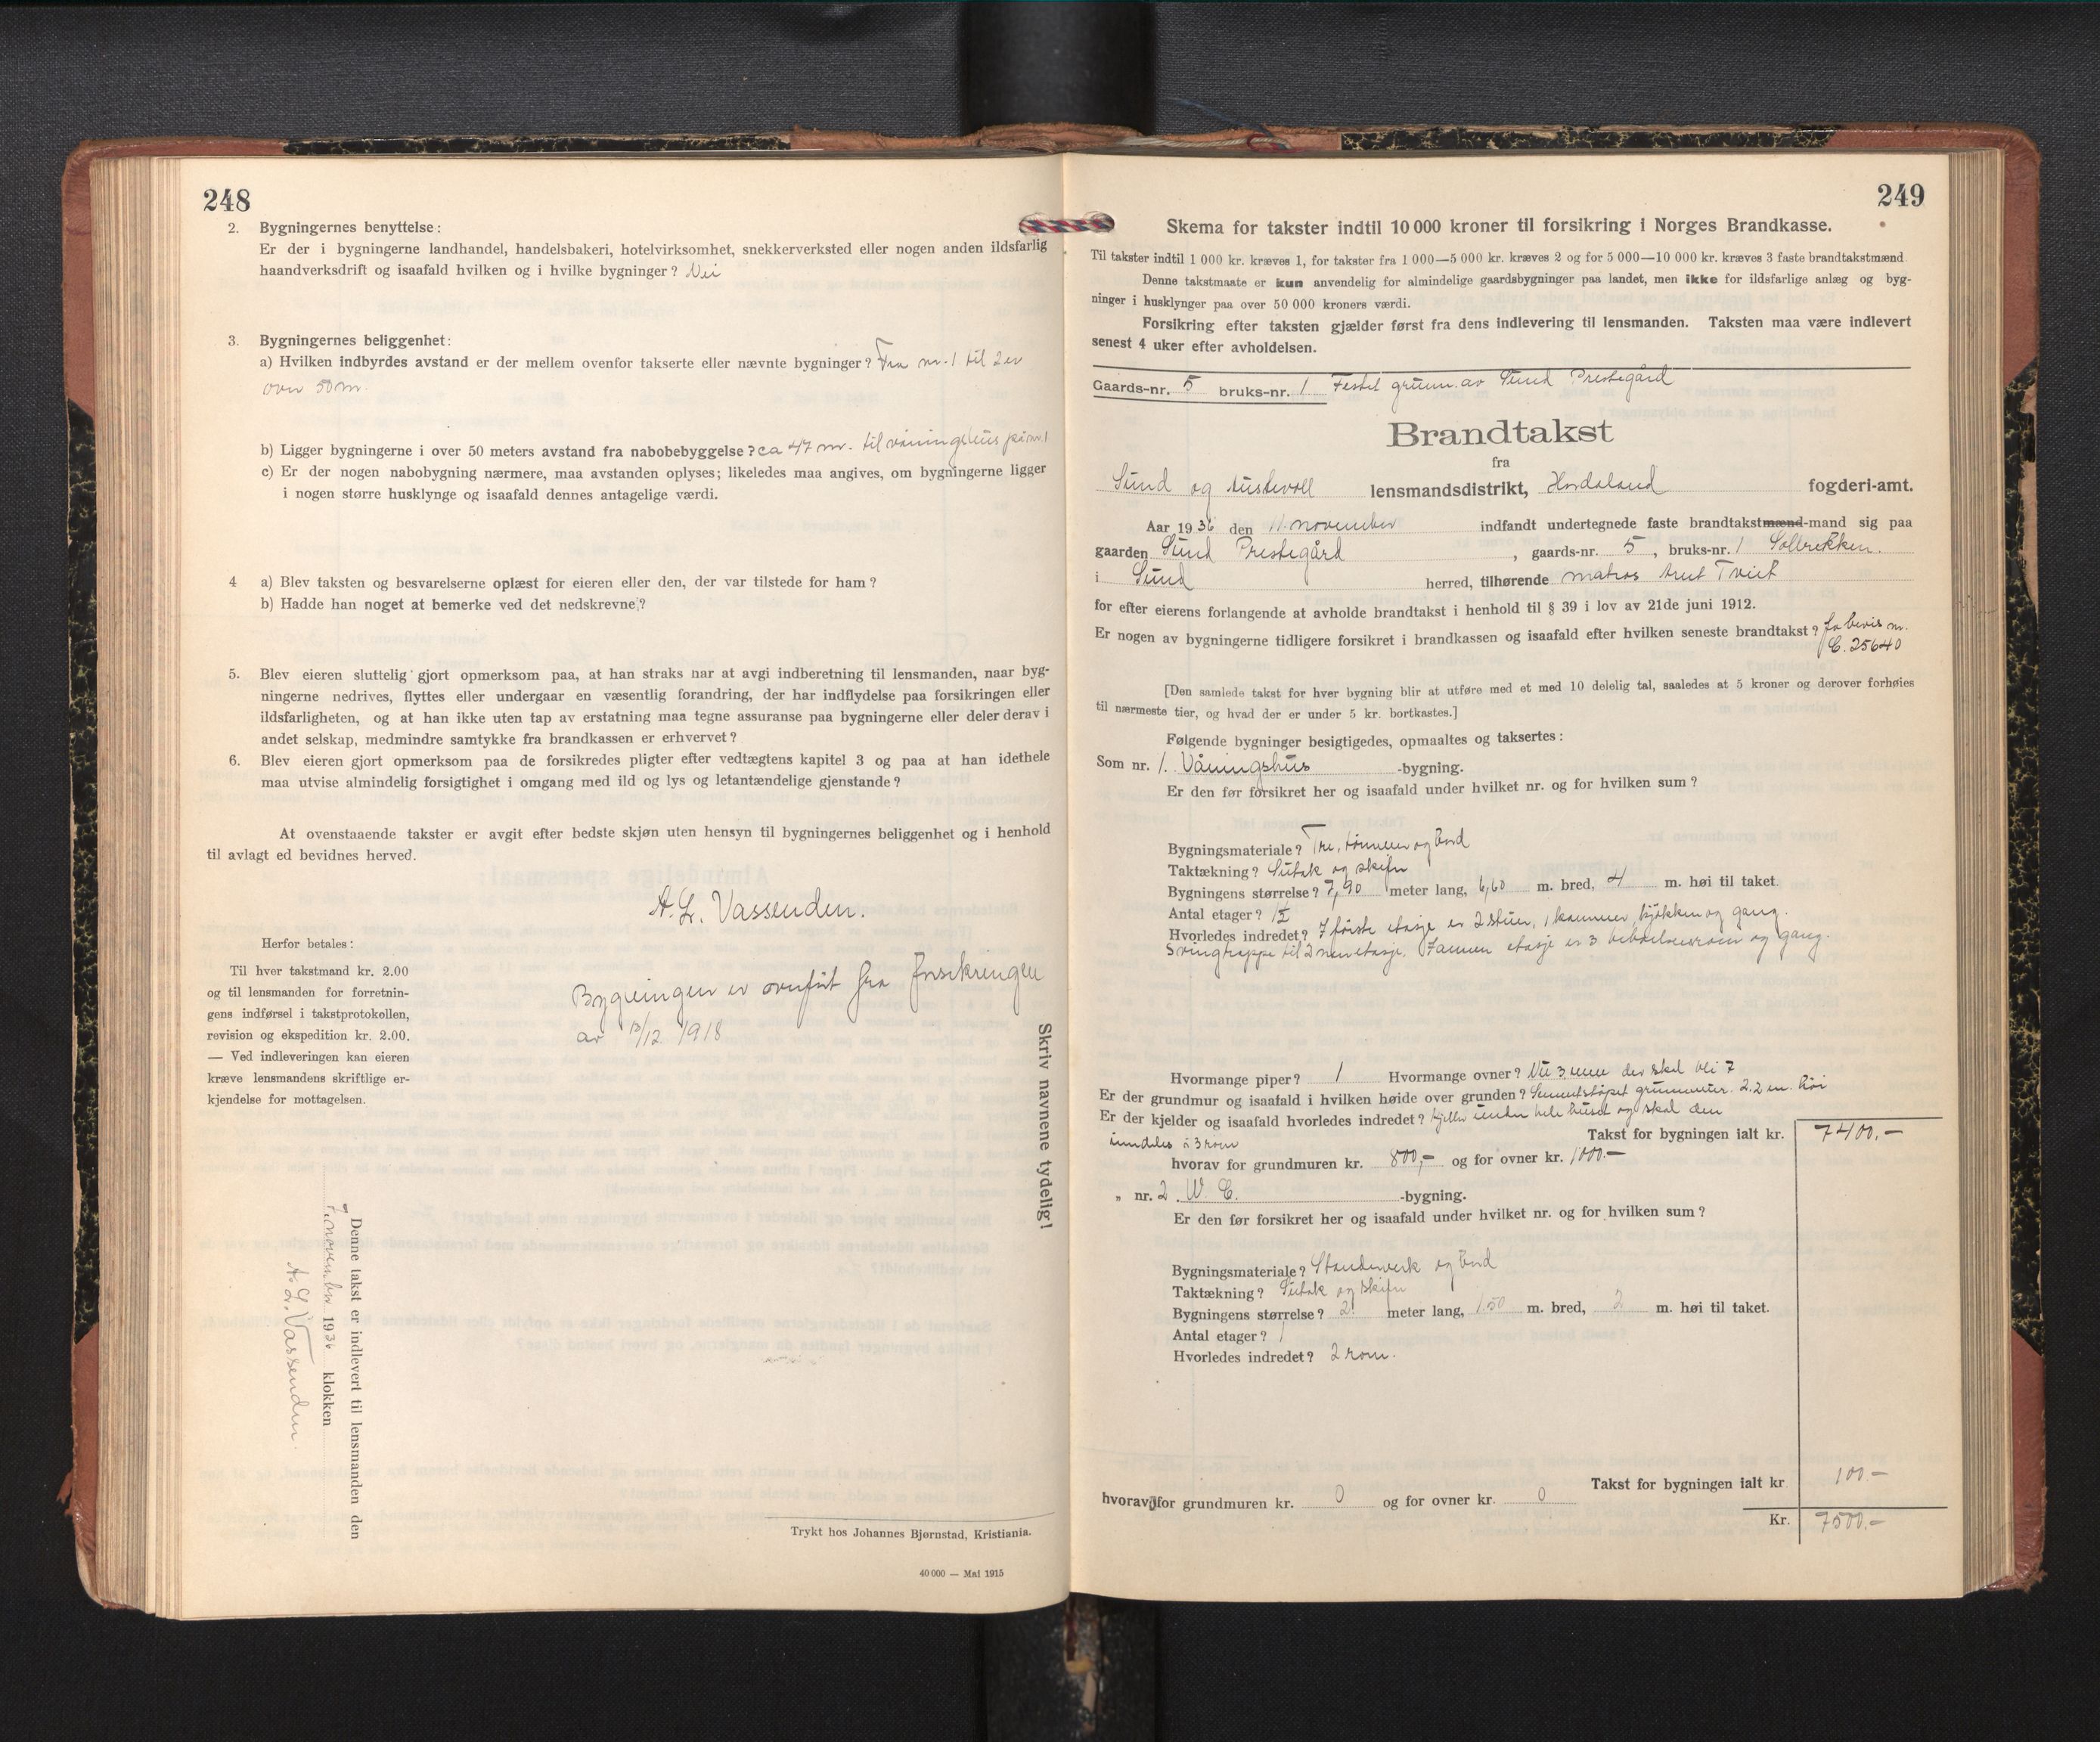 248
2. Bygningernes benyttelse:
Er der i bygningerne landhandel, handelsbakeri, hotelvirksomhet, snekkerverksted eller nogen anden ildsfarlig
haandverksdrift og isaafald hvilken og i hvilke bygninger? Nei
3. Bygningernes beliggenhet:
a) Hvilken indbyrdes avstand er der mellem ovenfor takserte eller nævnte bygninger? Fra nr. 1 til 2 er
over 50 m.
b) Ligger bygningerne i over 50 meters avstand fra nabobebyggelse? ca 47 m. til våningshus på nr. 1
c) Er der nogen nabobygning nærmere, maa avstanden oplyses; likeledes maa angives, om bygningerne ligger
i nogen større husklynge og isaafald dennes antagelige værdi.
4 a) Blev taksten og besvarelserne oplæst for eieren eller den, der var tilstede for ham?
b) Hadde han noget at bemerke ved det nedskrevne?
5. Blev eieren sluttelig gjort opmerksom paa, at han straks har at avgi indberetning til lensmanden, naar byg-
ningerne nedrives, flyttes eller undergaar en væsentlig forandring, der har indflydelse paa forsikringen eller
ildsfarligheten, og at han ikke uten tap av erstatning maa tegne assuranse paa bygningerne eller deler derav i
andet selskap, medmindre samtykke fra brandkassen er erhvervet?
6. Blev eieren gjort opmerksom paa de forsikredes pligter efter vedtægtens kapitel 3 og paa at han idethele
maa utvise almindelig forsigtighet i omgang med ild og lys og letantændelige gjenstande?
At ovenstaaende takster er avgit efter bedste skjøn uten hensyn til bygningernes beliggenhet og i henhold
til avlagt ed bevidnes herved.
A. L. Vassenden.
Herfor betales:
Til hver takstmand kr. 2.00
og til lensmanden for forretnin-
gens indførsel i takstprotokollen,
revision og ekspedition kr. 2.00.
— Ved indleveringen kan eieren
kræve lensmandens skriftlige er-
kjendelse for mottagelsen.
Bygningen er overført fra forsikringen
av /12 1918
Skriv navnene tydelig!
Denne takst er indlevert til lensmanden den
november 1936 klokken
A. L. Vassenden.
Trykt hos Johannes Bjørnstad, Kristiania.
40 000 — Mai 1915
249
Skema for takster indtil 10 000 kroner til forsikring i Norges Brandkasse.
Til takster indtil 1 000 kr. kræves 1, for takster fra 1 000—5 000 kr. kræves 2 og for 5 000—10 000 kr. kræves 3 faste brandtakstmænd
Denne takstmaate er kun anvendelig for almindelige gaardsbygninger paa landet, men ikke for ildsfarlige anlæg og byg-
ninger i husklynger paa over 50 000 kroners værdi.
Forsikring efter taksten gjælder først fra dens indlevering til lensmanden. Taksten maa være indlevert
senest 4 uker efter avholdelsen.
Gaards-nr. 5 bruks-nr. 1 Festet grunn av Sund Prestegård
Brandtakst
fra
Sund og Austevoll lensmandsdistrikt, Hordaland fogderi-amt.
Aar 1936 den 11. november indfandt undertegnede faste brandtakstmænd-mand sig paa
gaarden Sund Prestegård, gaards-nr. 5, bruks-nr. 1 Solbrekken.
i Sund herred, tilhørende matros Tveit
for efter eierens forlangende at avholde brandtakst i henhold til § 39 i lov av 21de juni 1912.
Er nogen av bygningerne tidligere forsikret i brandkassen og isaafald efter hvilken seneste brandtakst? Ja bevis nr.
C. 25640
[Den samlede takst for hver bygning blir at utføre med et med 10 delelig tal, saaledes at 5 kroner og derover forhøies
til nærmeste tier, og hvad der er under 5 kr. bortkastes.]
Følgende bygninger besigtigedes, opmaaltes og taksertes:
Som nr. 1. Våningshus -bygning.
Er den før forsikret her og isaafald under hvilket nr. og for hvilken sum?
Bygningsmateriale? Tre, tømmer og bord
Taktækning? Sutak og skifer
Bygningens størrelse? 7,90 meter lang, 6,60 m. bred, 4 m. høi til taket.
Antal etager? 1½
Hvorledes indredet? I første etasje er 2 stuer, 1 kammer, kjøkken og gang.
Svingtrappe til 2nen etasje. I annen etasje er 3 beboelsesrom og gang.
Hvormange piper? 1 Hvormange ovner? Nu 3 men der skal bli 7
Er der grundmur og isaafald i hvilken høide over grunden? Sementstøpet grunnmur. 2.2 m. høi
Er der kjelder og isaafald hvorledes indredet? Kjeller under hele huset og skal den
inndeles i 3 rom
Takst for bygningen ialt kr. 7400,-
hvorav for grundmuren kr. 800,- og for ovner kr. 1000.-
„ nr. 2. W. C. -bygning.
Er den før forsikret her og isaafald under hvilket nr. og for hvilken sum?
Bygningsmateriale? Stenderverk og bord
Taktækning? Sutak og skifer
Bygningens størrelse? 2 meter lang, 1.50 m. bred, 2 m. høi til taket.
Antal etager? 1
Hvorledes indredet? 2 rom.
Takst for bygningen ialt kr 100.-
hvorav for grundmuren kr. 0 og for ovner kr. 0
Kr. 7500.-